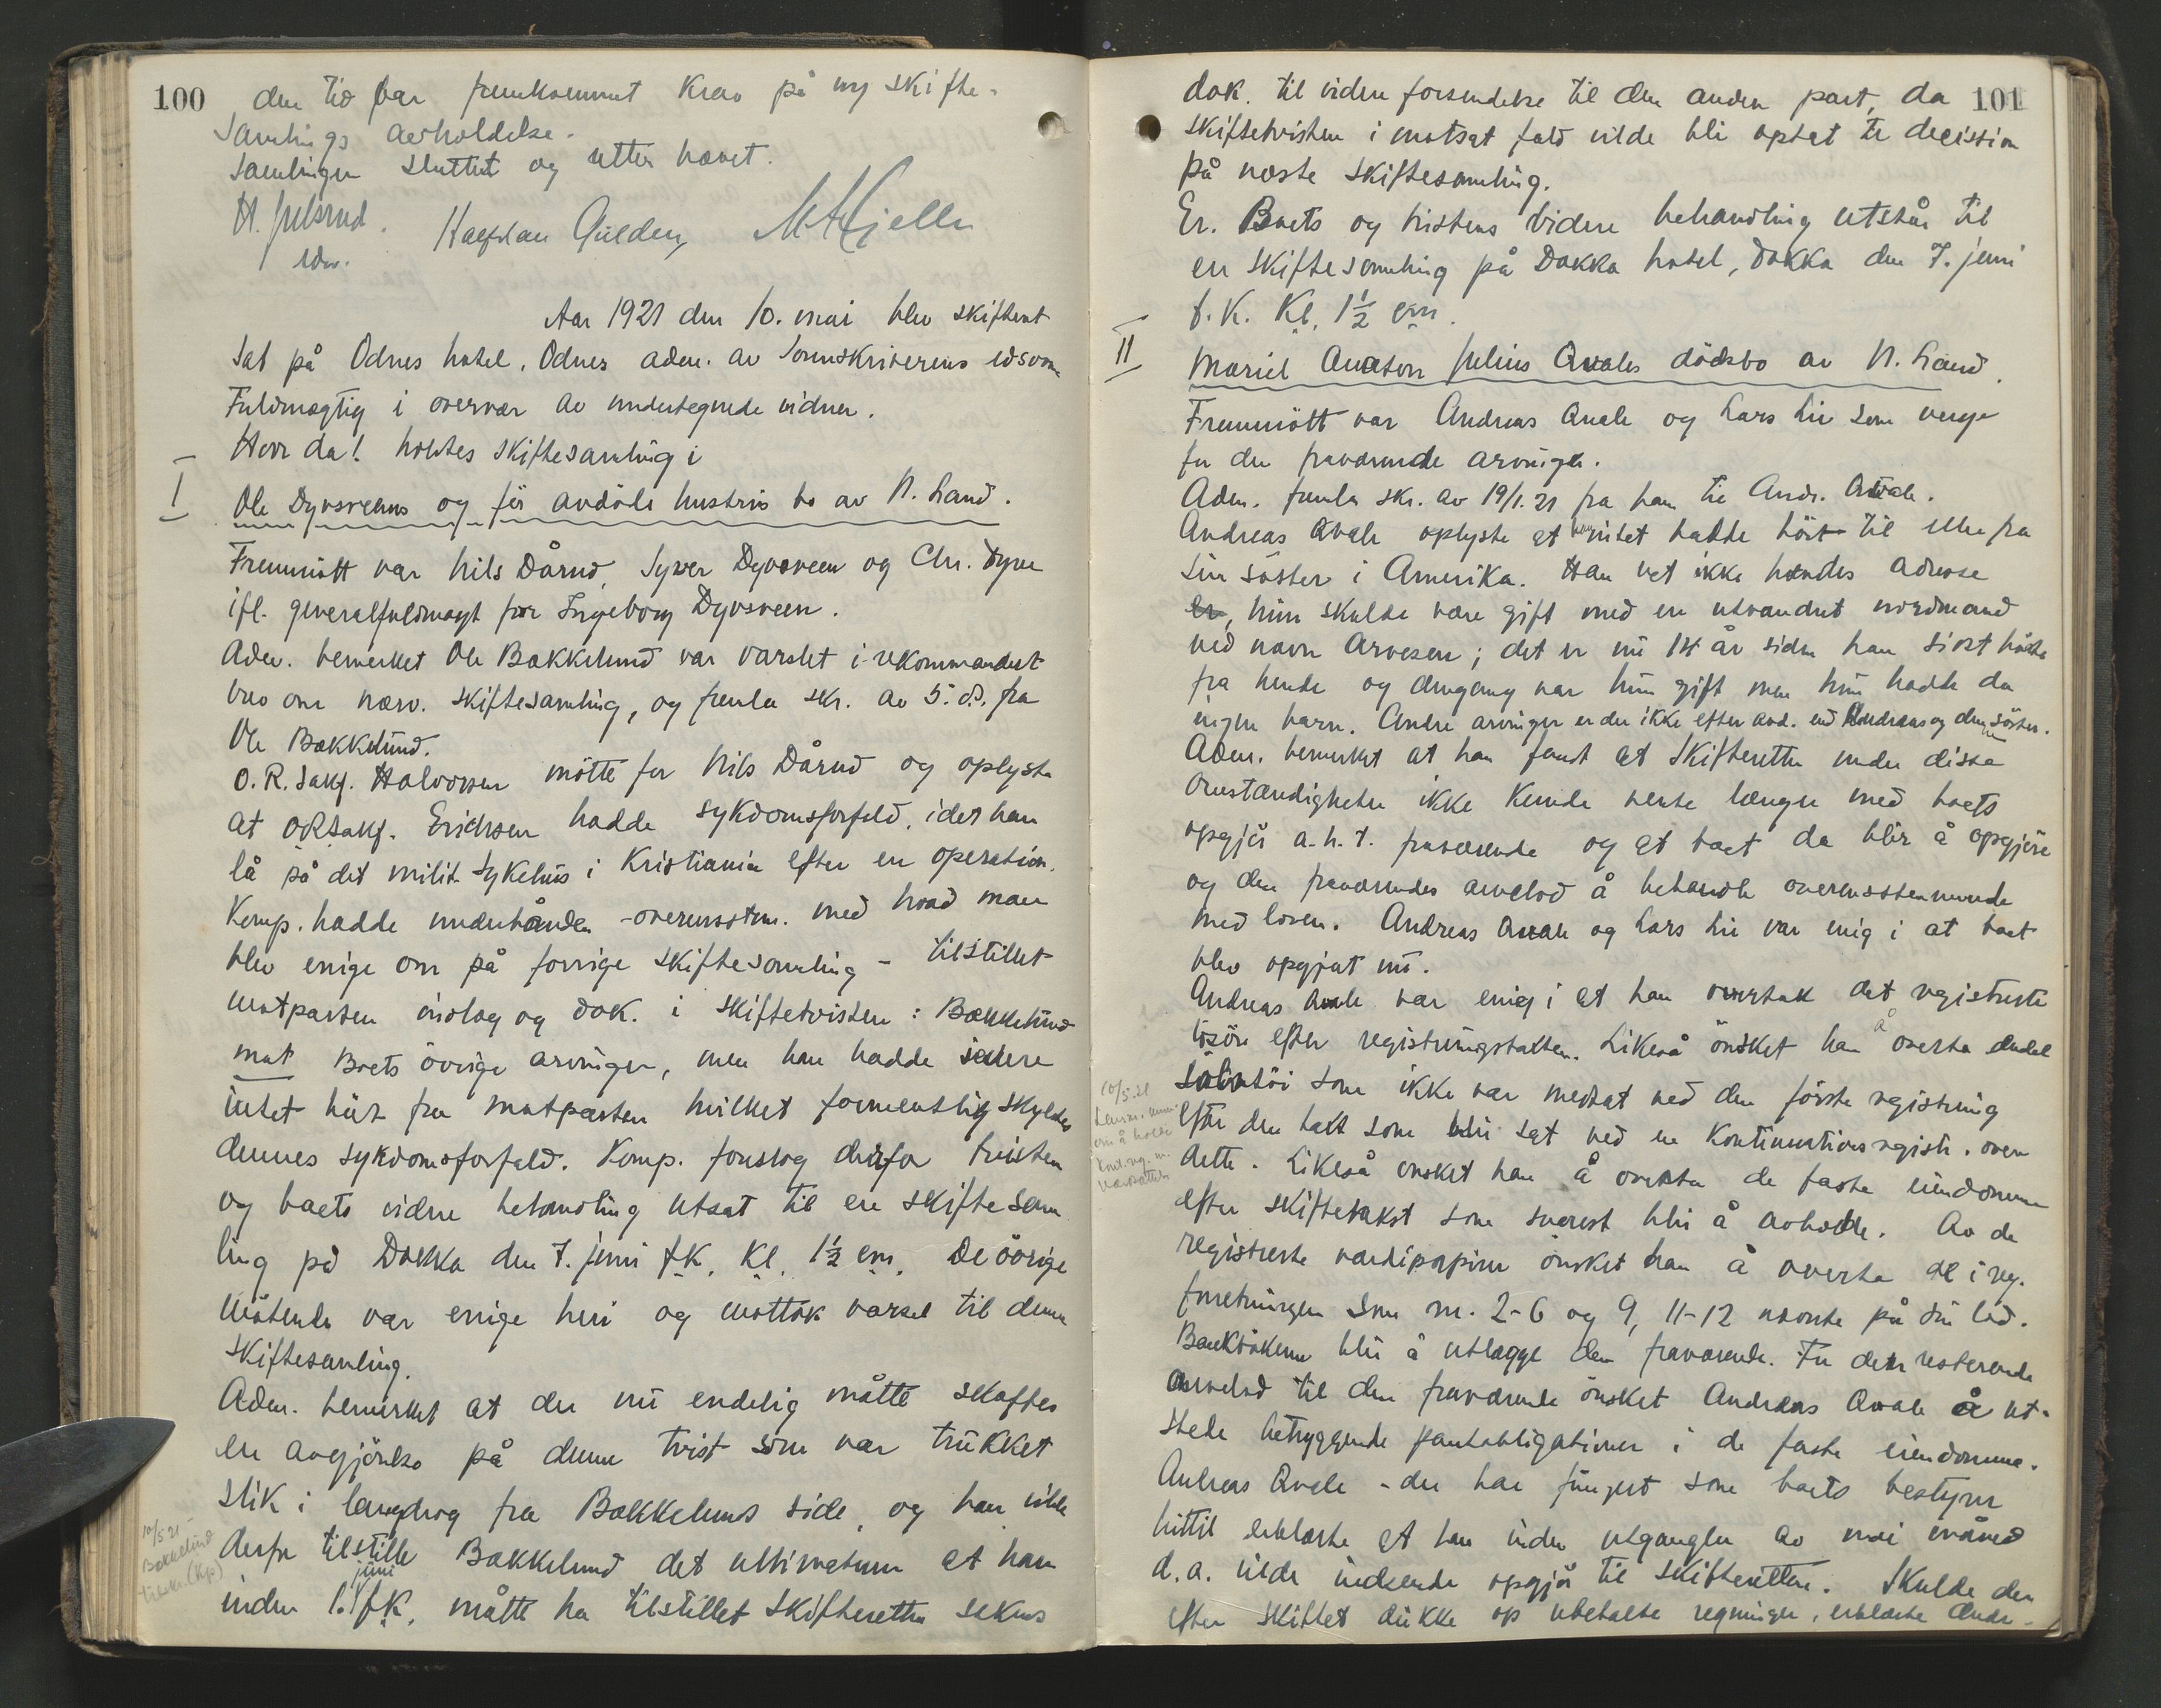 100
den tid har fremkommet krav på ny skifte-
samlings avholdelse.
Samlingen sluttet og retten hævet.
H. Julsrud. Halfdan Gulden M. Hjelle
edsv.
Aar 1921 den 10. mai blev skifteret
sat på Odnes hotel, Odnes adm. av sorenskriverens edsvorne
Fuldmægtig i overvær av undertegnede vidner.
Hvor da! holdtes skiftesamling i
I
Ole Dyvsveens og før avdøde hustrus bo av N. Land.
Fremmøtt var Nils Dårud, Syver Dyvsveen og Chr. Dyve
ifl. generalfuldmagt for Ingeborg Dyvsveen.
Adm. bemerket Ole Bakkelund var varslet i rekommandert
brev om nærv. skiftesamling, og fremla skr. av 5. ds. fra
Ole Bakkelund.
O.R.sakf. Halvorsen møtte for Nils Dårud og oplyste
at ORsakf. Erichsen hadde sykdomsforfald, idet han
lå på det milit. sykehus i Kristiania efter en operation.
Komp. hadde underhånden - overensstem. med hvad man
blev enige om på forrige skiftesamling - tilstillet
motparten indlæg og dok. i skiftetvisten: Bakkelund
mot Boets øvrige arvinger, men han hadde senere
intet hørt fra motparten hvilket formentlig skyldes
dennes sykdomsforfald. Komp. foreslog derfor tvisten
og boets videre behandling utsat til en skiftesam
ling på Dokka den 7. juni f.k. kl. 1½ em. De øvrige
møtende var enige heri og mottok varsel til denne
skiftesamling.
Adm. bemerket at der nu endelig måtte skaffes
en avgjørelse på denne tvist som var trukket
slik i langdrag fra Bakkelunds side, og han vilde
10/5 21 -
Bakkelund
tilskr. (Kp)
derfor tilstille Bakkelund det ultimatum at han
juni
inden 1. f.k. måtte ha tilstillet skifteretten sakens
101
dok. til videre forsendelse til den anden part, da
skiftetvisten i motsat fald vilde bli optat til decission
på næste skiftesamling.
Er. Boets og tvistens videre behandling utstår til
en skiftesamling på Dokka hotel, Dokka den 7. juni
f.k. Kl. 1½ em.
II
Mariel Anton Julius Qvales dödsbo av N. Land.
Fremmøtt var Andreas Qvale og Lars Lie som verge
for den fraværende arving.
Adm. fremla skr. av 19/1. 21 fra ham til Andr. Qvale.
Andreas Qvale oplyste at han intet hadde hört til eller fra
sin søster i Amerika. Han vet ikke hendes adresse
er, hun skulde være gift med en utvandret nordmand
ved navn Arvesen; det er nu 14 år siden han sidst hørte
fra hende og dengang var hun gift men hun hadde da
ingen barn. Andre arvinger er der ikke efter avd. end Andreas og denne søster.
Adm. bemerket at han fandt at skifteretten under disse
omstændigheter ikke kunde vente længer med boets
opgjør a.h.t. fraværende og at boet da blir å opgjøre
og den fraværendes arvelod å behandle overensstemmende
med loven. Andreas Qvale og Lars Lie var enig i at boet
blev opgjort nu.
Andreas Qvale var enig i at han overtok det registrerte
løsøre efter registreringstaksten. Likeså ønsket han å overta endel
10/5.21
Lensm. anm.
om å holde
kont. reg. m.
værsetten
som ikke var medtat ved den første registrering
efter den takt som blir sat ved en kontinuationsregistr. over
dette. Likeså ønsket han å overta de faste eiendomme
efter skiftetakst som snarest blir å avholde. Av de
registrerte værdipapirer ønsket han å overta de i reg.
forretningen som nr. 2-6 og 9, 11-12 anførte på sin lod.
Bankbøkerne blir å utlægge den fraværende. For den resterende
arvelod til den fraværende ønsket Andreas Qvale å ut-
stede betryggende pantobligationer i de faste eiendomme.
Andreas Qvale - der har fungert som boets bestyrer
hittil erklærte at han inden utgangen av mai måned
d.a. vilde indsende opgjør til skifteretten. Skulde der
efter skiftet dukke op ubetalte regninger, erklærte Andr-